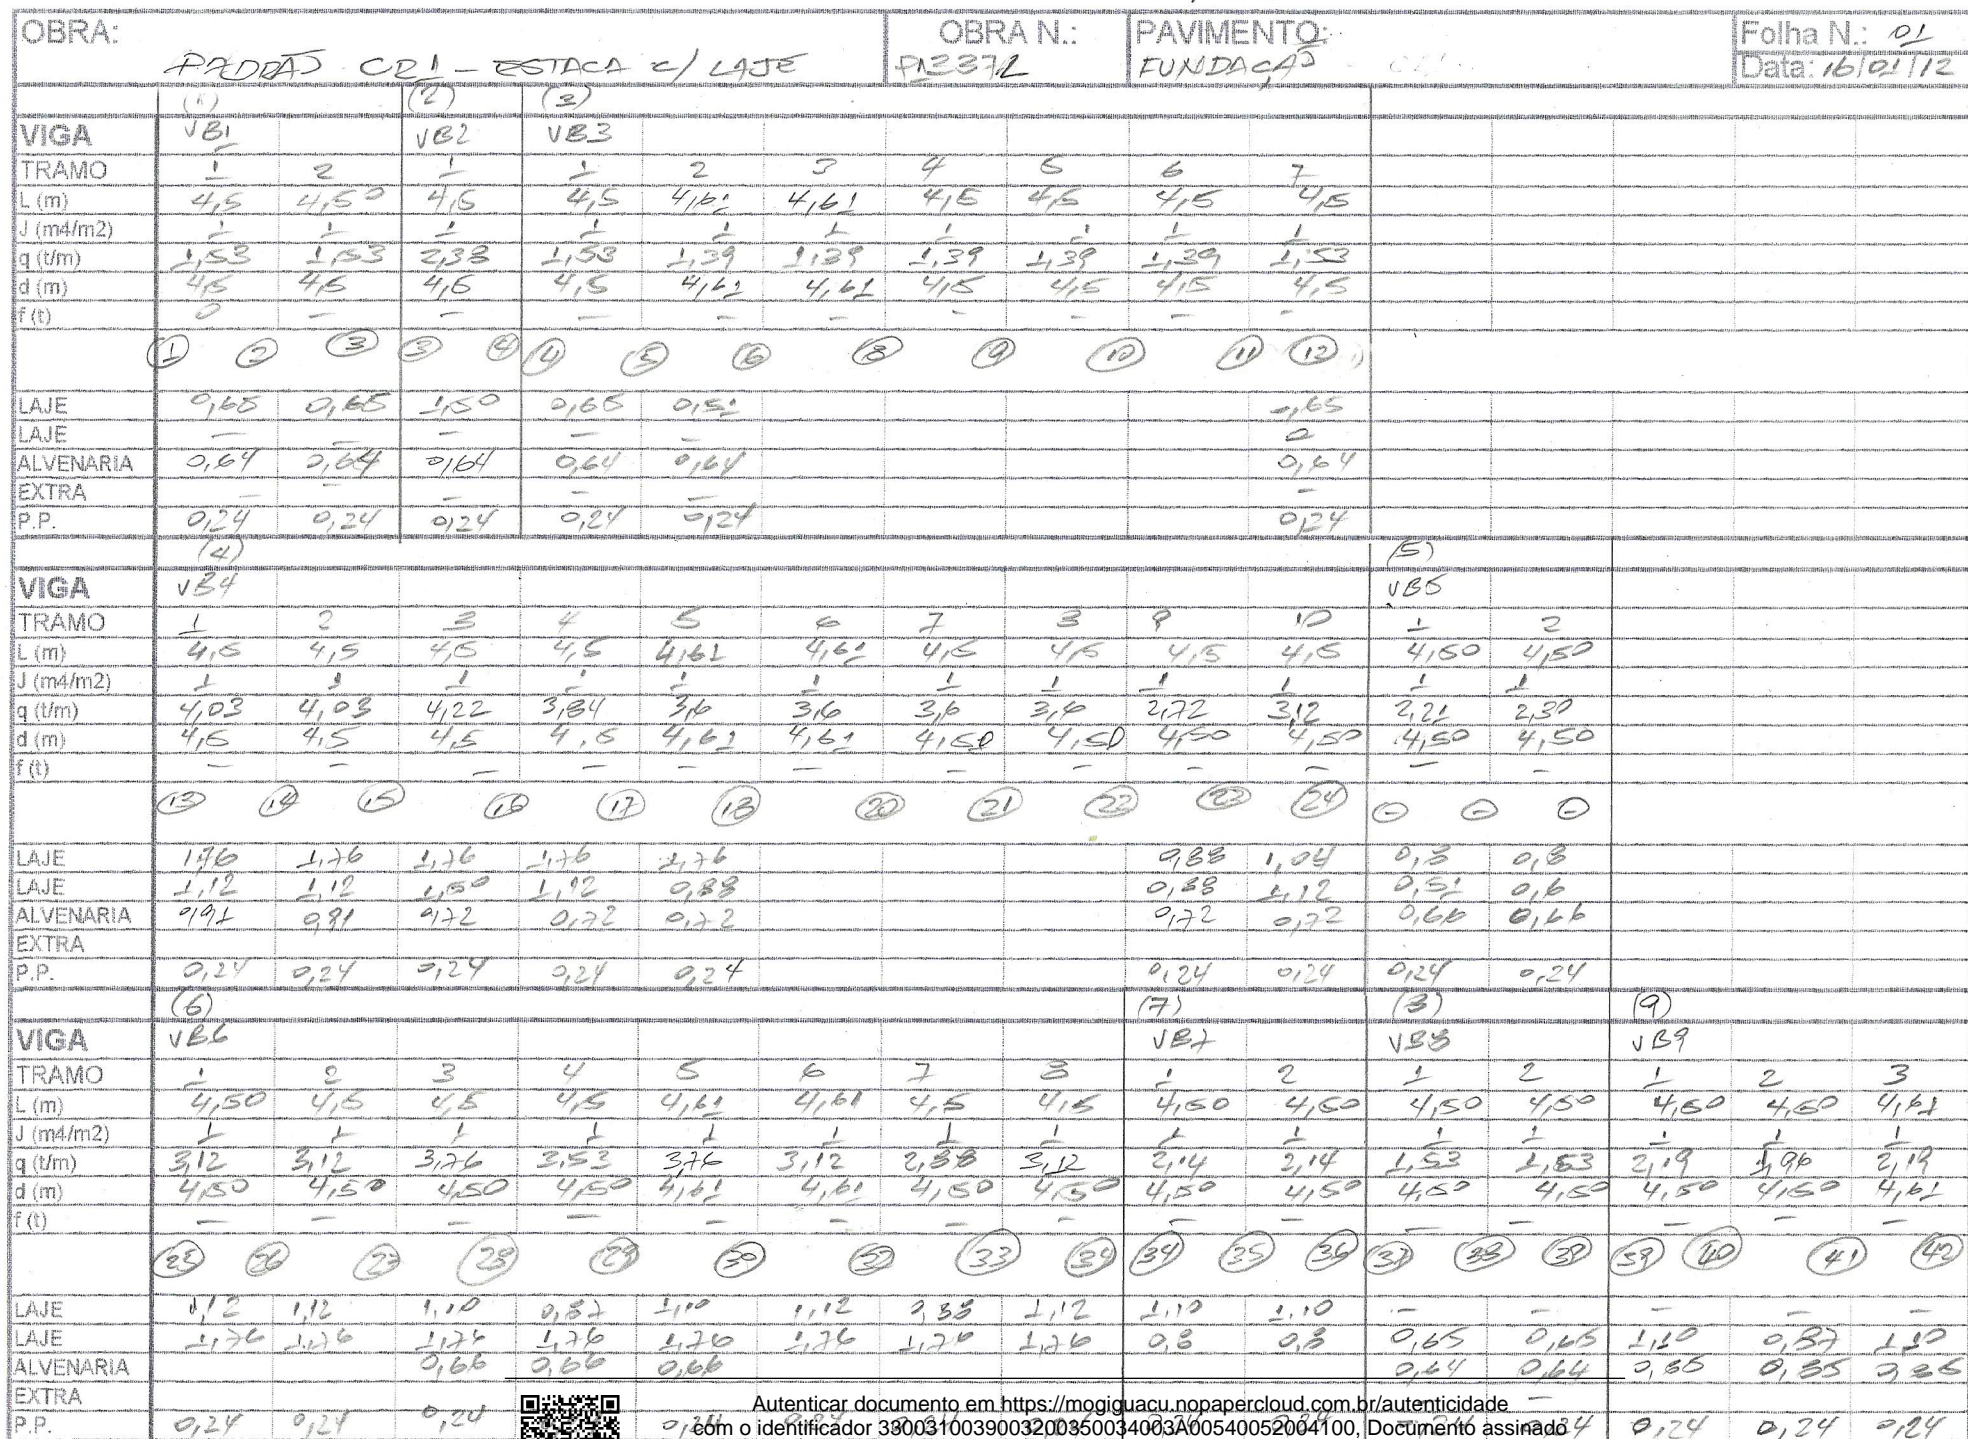 OBRA: OBRA N.: PAVIMENTO: Folha N.: 01
PADRÃO CR1 - ESTACA C/ LAJE FUNDAÇÃO Data: 16/01/12
(1) (2) (3)
VIGA VB1 VB2 VB3
TRAMO 1 2 1 1 2 3 4 5 6 7
L (m) 4,5 4,50 4,5 4,5 4,61 4,61 4,5 4,5 4,5 4,5
J (m4/m2) 1 1 1 1 1 1 1 1 1 1
q (t/m) 1,53 1,53 2,38 1,53 1,39 1,39 1,39 1,39 1,39 1,53
d (m) 4,5 4,5 4,5 4,5 4,61 4,61 4,5 4,5 4,5 4,5
f (t) 0 - - - - - - - - -
1 2 3 3 4 4 5 6 8 9 10 11 12
LAJE 0,65 0,65 1,50 0,65 0,51 0,65
LAJE - - - - - 0
ALVENARIA 0,64 0,64 0,64 0,64 0,64 0,64
EXTRA - - - - - -
P.P. 0,24 0,24 0,24 0,24 0,24 0,24
(4) (5)
VIGA VB4 VB5
TRAMO 1 2 3 4 5 6 7 8 9 10 1 2
L (m) 4,5 4,5 4,5 4,5 4,61 4,61 4,5 4,5 4,5 4,5 4,50 4,50
J (m4/m2) 1 1 1 1 1 1 1 1 1 1 1 1
q (t/m) 4,03 4,03 4,22 3,84 3,6 3,6 3,6 3,6 2,72 3,12 2,21 2,30
d (m) 4,5 4,5 4,5 4,5 4,61 4,61 4,50 4,50 4,50 4,50 4,50 4,50
f (t) - - - - - - - - - - - -
13 14 15 16 17 18 20 21 22 23 24 - - -
LAJE 1,76 1,76 1,76 1,76 1,76 0,88 1,04 0,8 0,8
LAJE 1,12 1,12 1,50 1,12 0,88 0,88 1,12 0,51 0,6
ALVENARIA 0,91 0,91 0,72 0,72 0,72 0,72 0,72 0,66 0,66
EXTRA
P.P. 0,24 0,24 0,24 0,24 0,24 0,24 0,24 0,24 0,24
(6) (7) (8) (9)
VIGA VB6 VB7 VB8 VB9
TRAMO 1 2 3 4 5 6 7 8 1 2 1 2 1 2 3
L (m) 4,50 4,5 4,5 4,5 4,61 4,61 4,5 4,5 4,50 4,50 4,50 4,50 4,50 4,50 4,61
J (m4/m2) 1 1 1 1 1 1 1 1 1 1 1 1 1 1 1
q (t/m) 3,12 3,12 3,76 3,53 3,76 3,12 2,88 3,12 2,14 2,14 1,53 1,53 2,19 1,96 2,19
d (m) 4,50 4,50 4,50 4,50 4,61 4,61 4,50 4,50 4,50 4,50 4,50 4,50 4,50 4,50 4,61
f (t) - - - - - - - - - - - - - - -
25 26 27 28 29 30 32 33 34 34 35 36 37 38 39 39 40 41 42
LAJE 1,12 1,12 1,10 0,87 1,10 1,12 0,88 1,12 1,10 1,10 - - - - -
LAJE 1,76 1,76 1,76 1,76 1,76 1,76 1,76 1,76 0,8 0,8 0,65 0,65 1,10 0,87 1,10
ALVENARIA 0,66 0,66 0,66 0,64 0,64 0,85 0,85 0,85
EXTRA -
P.P. 0,24 0,24 0,24 0,24 0,24 0,24 0,24 0,24
Autenticar documento em https://mogiguacu.nopapercloud.com.br/autenticidade
com o identificador 3300310039003200350034003A00540052004100, Documento assinado